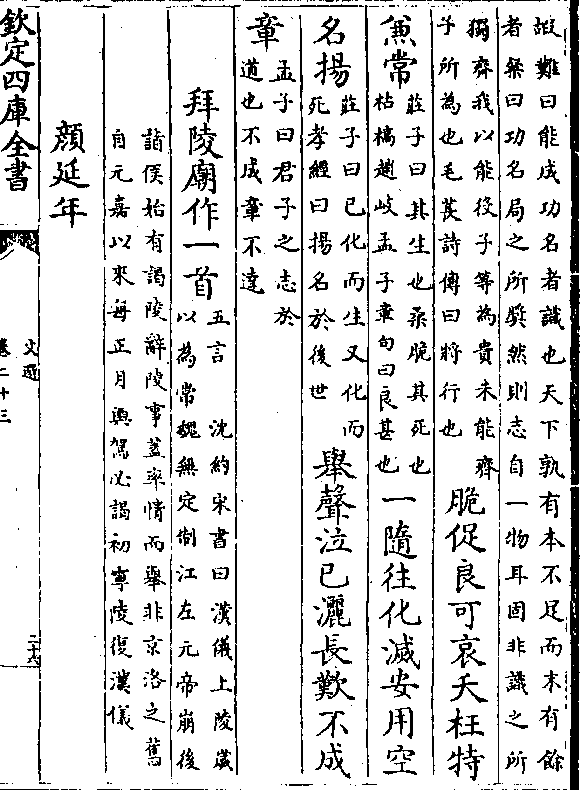 故難曰能成功名者識也天下孰有本不足而末有餘
者粲曰功名局之所奬然則志自一物耳固非識之所
獨齊我以能役子等為貴未能齊
子所為也毛萇詩傳曰將行也
脆促良可哀夭枉特
兼常
莊子曰其生也柔脆其死也
枯槁趙岐孟子章句曰良甚也
一隨往化滅安用空
名揚
莊子曰已化而生又化而
死孝經曰揚名於後世
舉聲泣已灑長歎不成
章
孟子曰君子之志於
道也不成章不達
拜陵廟作一首
五言 沈約宋書曰漢儀上陵歲
以為常魏無定制江左元帝崩後
諸侯始有謁陵辭陵事蓋率情而舉非京洛之舊
自元嘉以來每正月輿駕必謁初寧陵復漢儀
顔延年
欽定四庫全書
文選
卷二十三
二十六